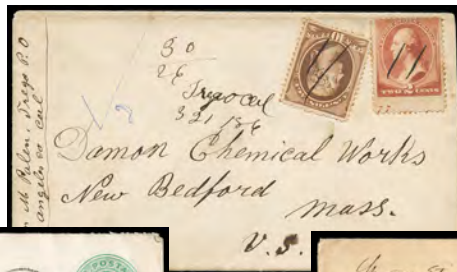 Palen, Trego P.O
angeles co. cal
30
26
Trego cal
3 21 186
Damon Chemical Works
New Bedford
Mass.
U.S.
10
TWO 2 CENTS
POSTA